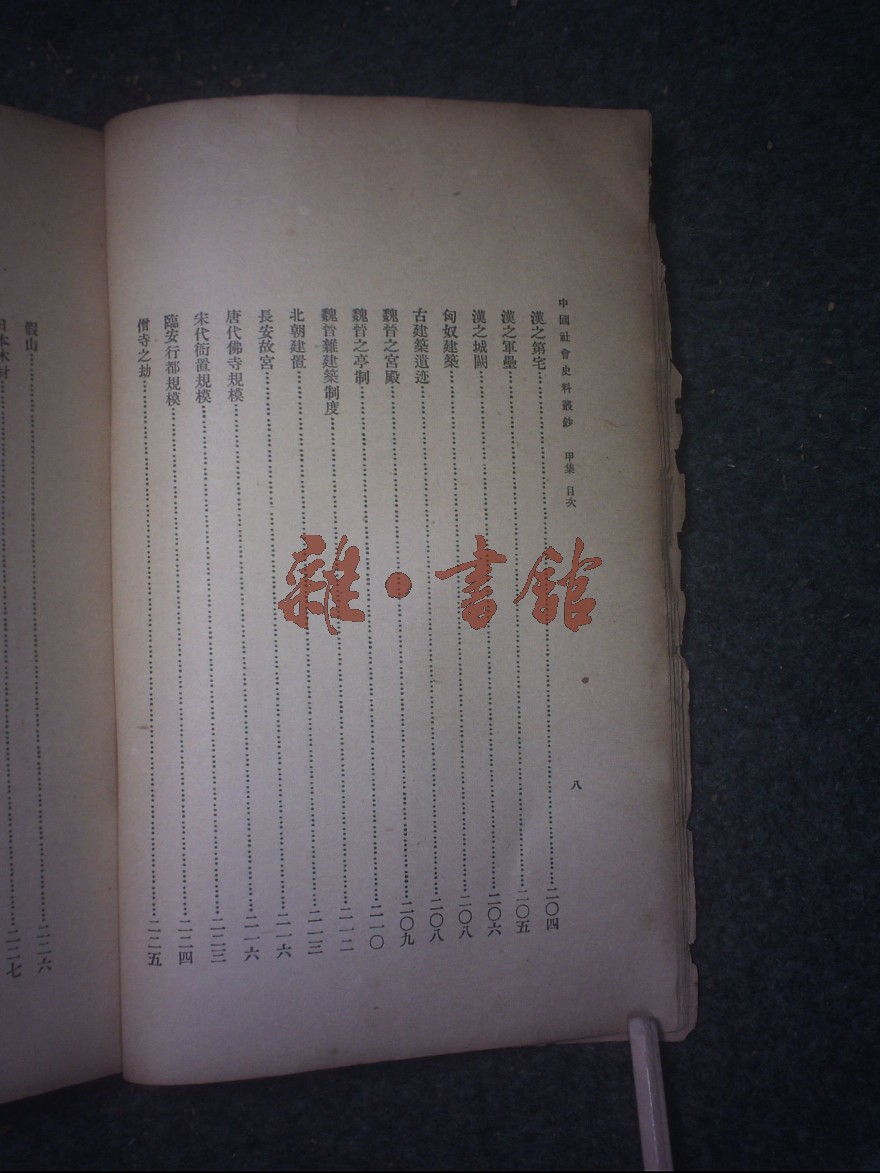 中國社會史料叢鈔 甲集 目次 八
漢之第宅……二〇四
漢之軍壘……二〇五
漢之城闕……二〇六
匈奴建築……二〇八
古建築遺迹……二〇八
魏晉之宮殿……二〇九
魏晉之亭制……二一〇
魏晉雜建築制度……二一二
北朝建置……二一三
長安故宮……二一六
唐代佛寺規模……二一六
宋代衙置規模……二二三
臨安行都規模……二二四
僧寺之劫……二二五
假山……二二六
日本木材……二二七
雜·書館